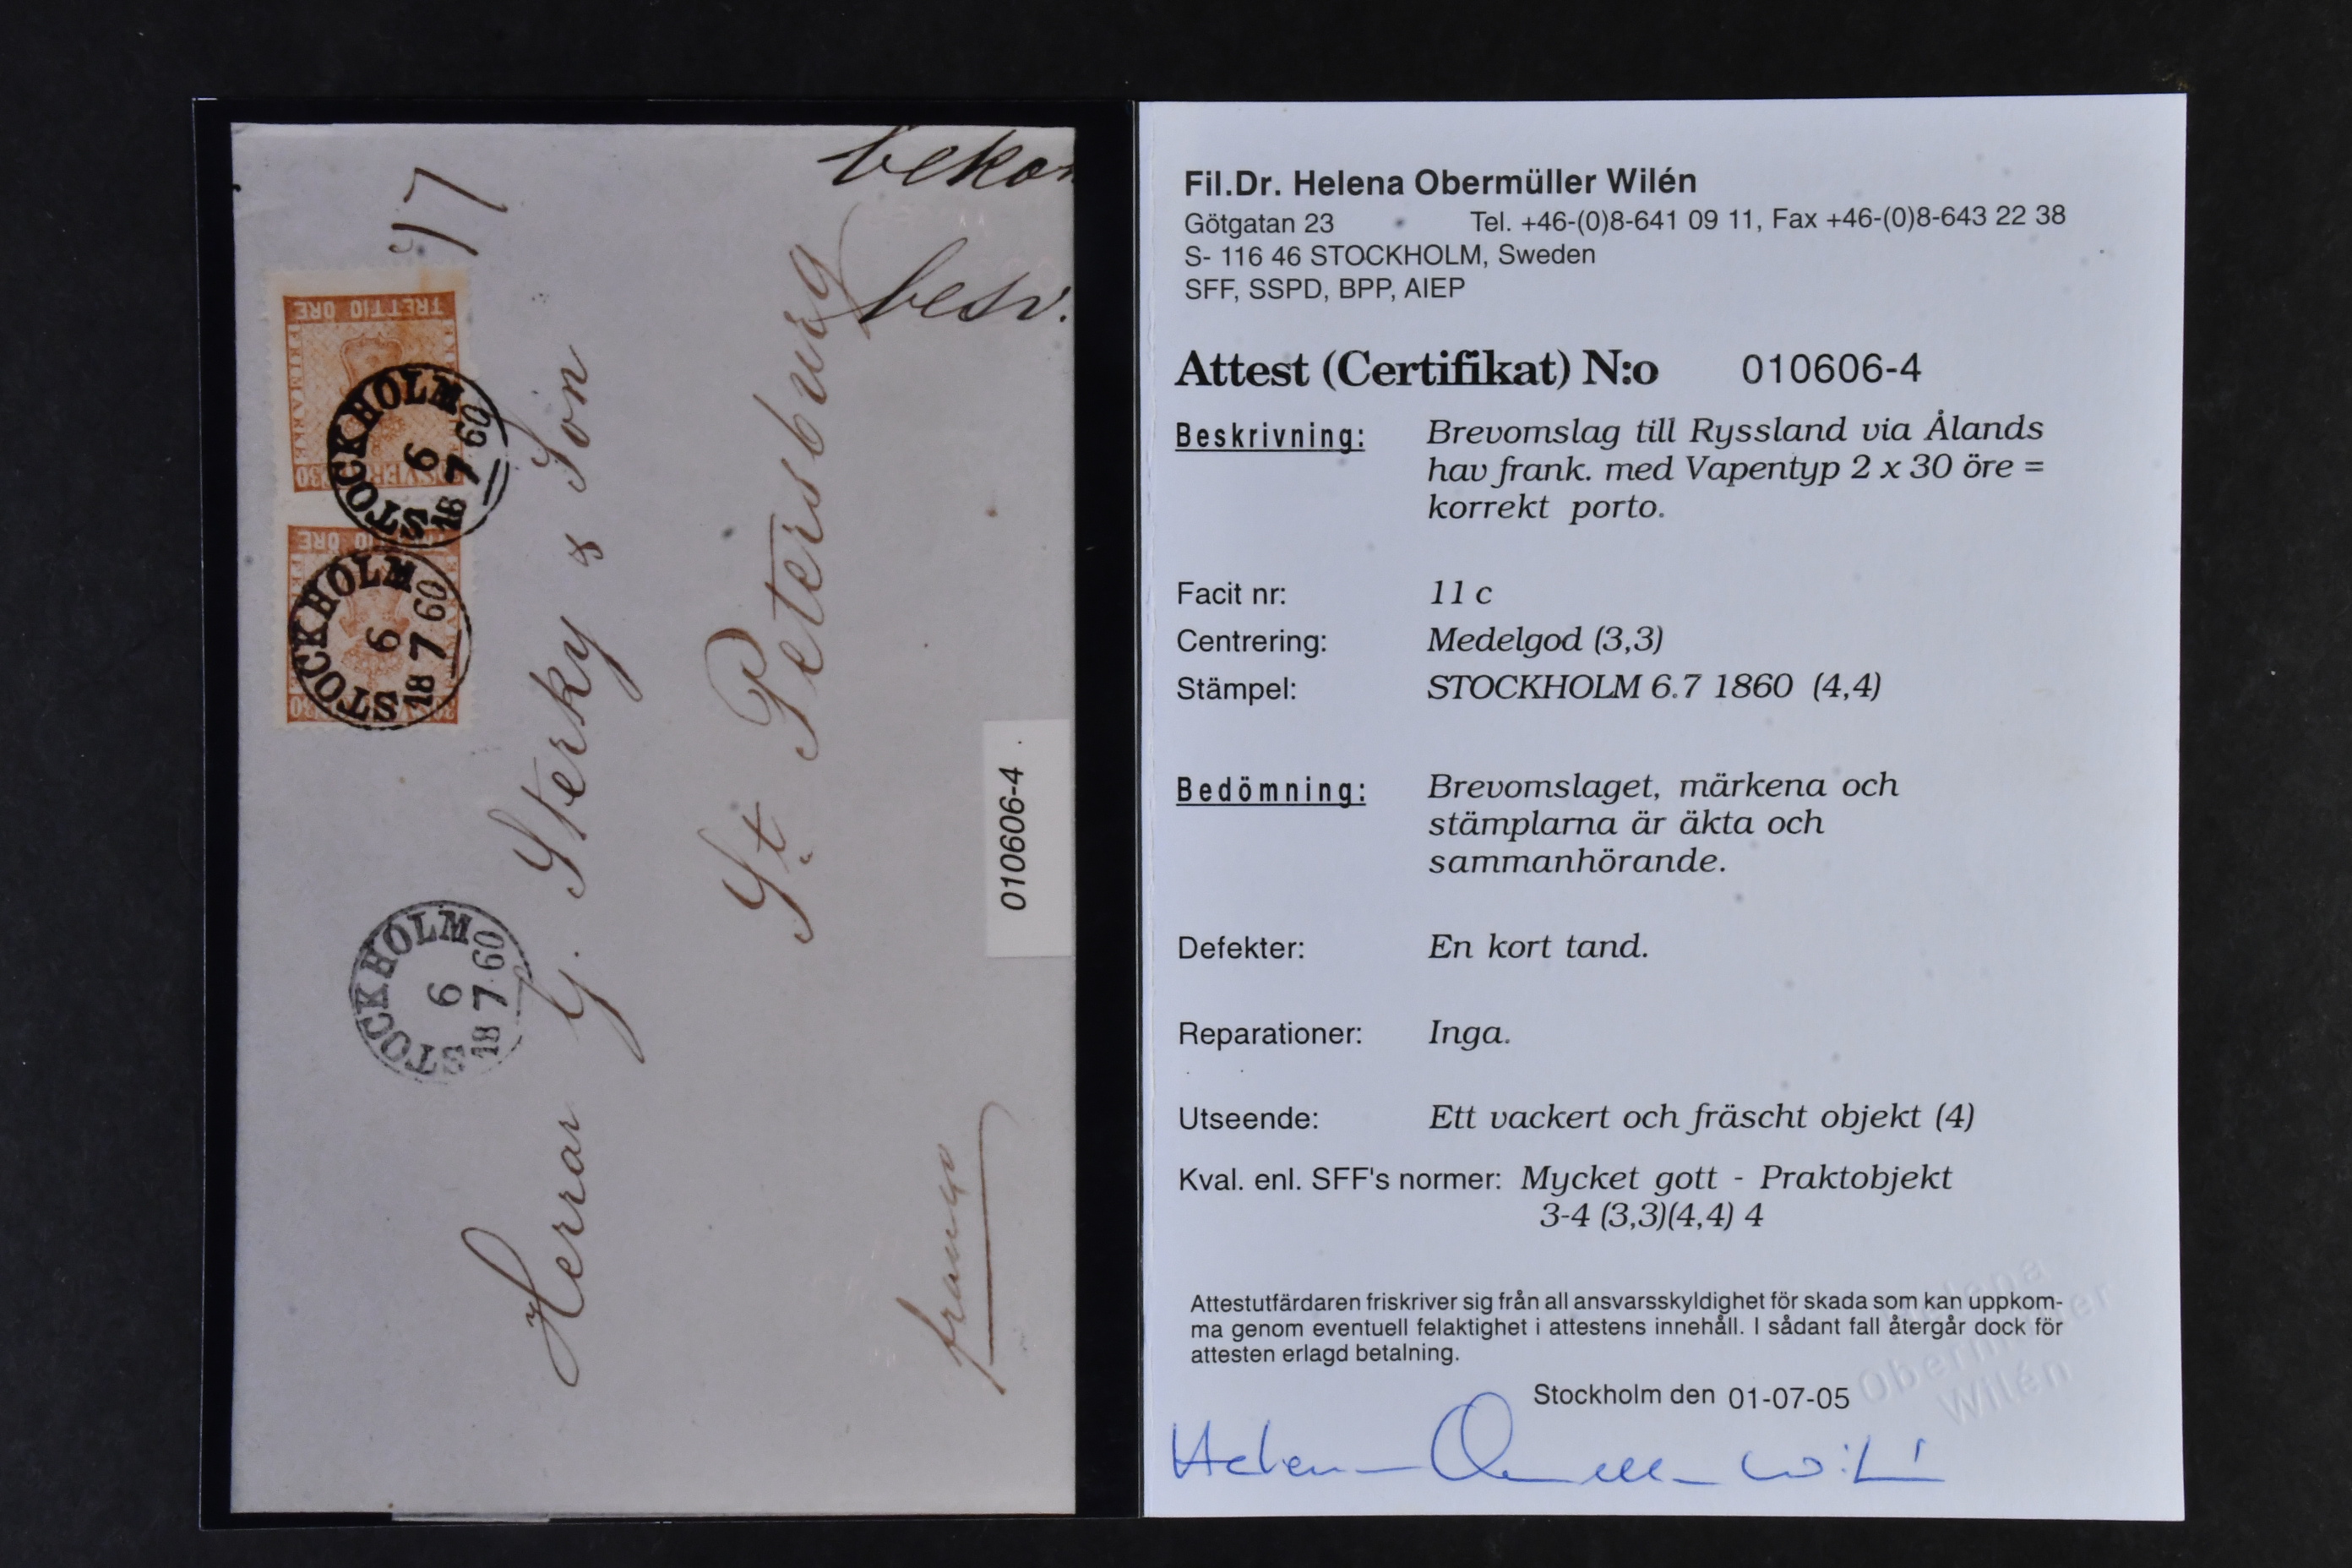 bekom
besv.
17
TRETTIO ÖRE
FRIMÄRKE
30 SVER 30
STOCKHOLM
6
18 7 60
TRETTIO ÖRE
STOCKHOLM
6
18 7 60
STOCKHOLM
6
18 7 60
Herrar G. Sterky & Son
St. Petersburg
franco
010606-4
Fil.Dr. Helena Obermüller Wilén
Götgatan 23 Tel. +46-(0)8-641 09 11, Fax +46-(0)8-643 22 38
S- 116 46 STOCKHOLM, Sweden
SFF, SSPD, BPP, AIEP
Attest (Certifikat) N:o 010606-4
Beskrivning: Brevomslag till Ryssland via Ålands
hav frank. med Vapentyp 2 x 30 öre =
korrekt porto.
Facit nr: 11 c
Centrering: Medelgod (3,3)
Stämpel: STOCKHOLM 6.7 1860 (4,4)
Bedömning: Brevomslaget, märkena och
stämplarna är äkta och
sammanhörande.
Defekter: En kort tand.
Reparationer: Inga.
Utseende: Ett vackert och fräscht objekt (4)
Kval. enl. SFF's normer: Mycket gott - Praktobjekt
3-4 (3,3)(4,4) 4
Attestutfärdaren friskriver sig från all ansvarsskyldighet för skada som kan uppkom-
ma genom eventuell felaktighet i attestens innehåll. I sådant fall återgår dock för
attesten erlagd betalning.
Stockholm den 01-07-05
Helena
Obermüller
Wilén
Helena Obermüller Wilén